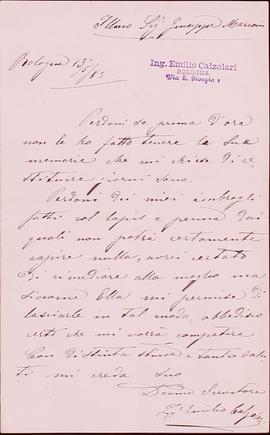 Illmo Sig. Giuseppe Marconi
Bologna 13/5/83
Ing. Emilio Calzolari
BOLOGNA
Via S. Giorgio 1
Perdoni se prima d'ora
non le ho fatto tenere le Sue
memorie che mi chiese di re
stituire giorni sono.
Perdoni dei miei imbrogli
fatti col lapis e penna dai
quali non potrà certamente
capire nulla, avrei cercato
di rimediare alla meglio ma
siccome Ella mi permise di
lasciarle in tal modo, obbedisco
certo che mi vorrà compatire
Con distinta stima e tanti salu
ti mi creda Suo
Devmo Servitore
Emilio